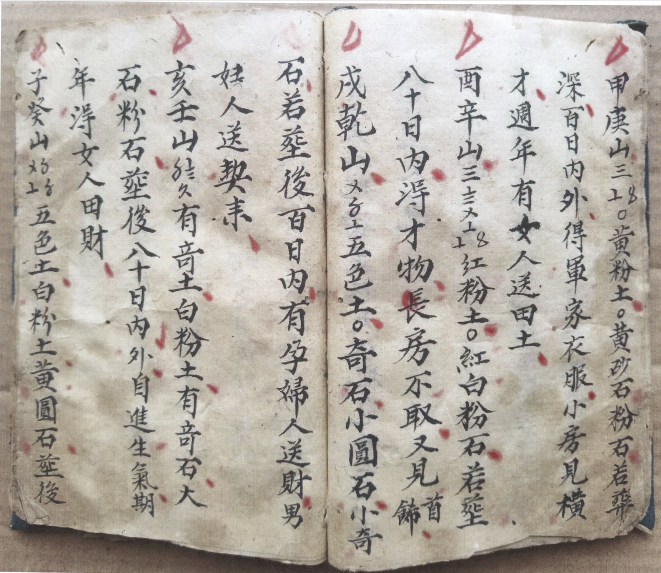 甲庚山三〦〨〇黄粉土〇黄砂石粉石若塟
深百日內外得軍家衣服小房見橫
才週年有女人送田土
酉辛山三〨紅粉土〇紅白粉石若塟
八十日內得才物長房不取又見首餙
戌乾山五色土〇奇石小圓石小奇
石若塟後百日內有孕婦人送財男
妇人送契来
亥壬山有奇土白粉土有奇石大
石粉石塟後八十日內外自進生氣期
年淂女人田財
子癸山五色土白粉土黄圓石塟後